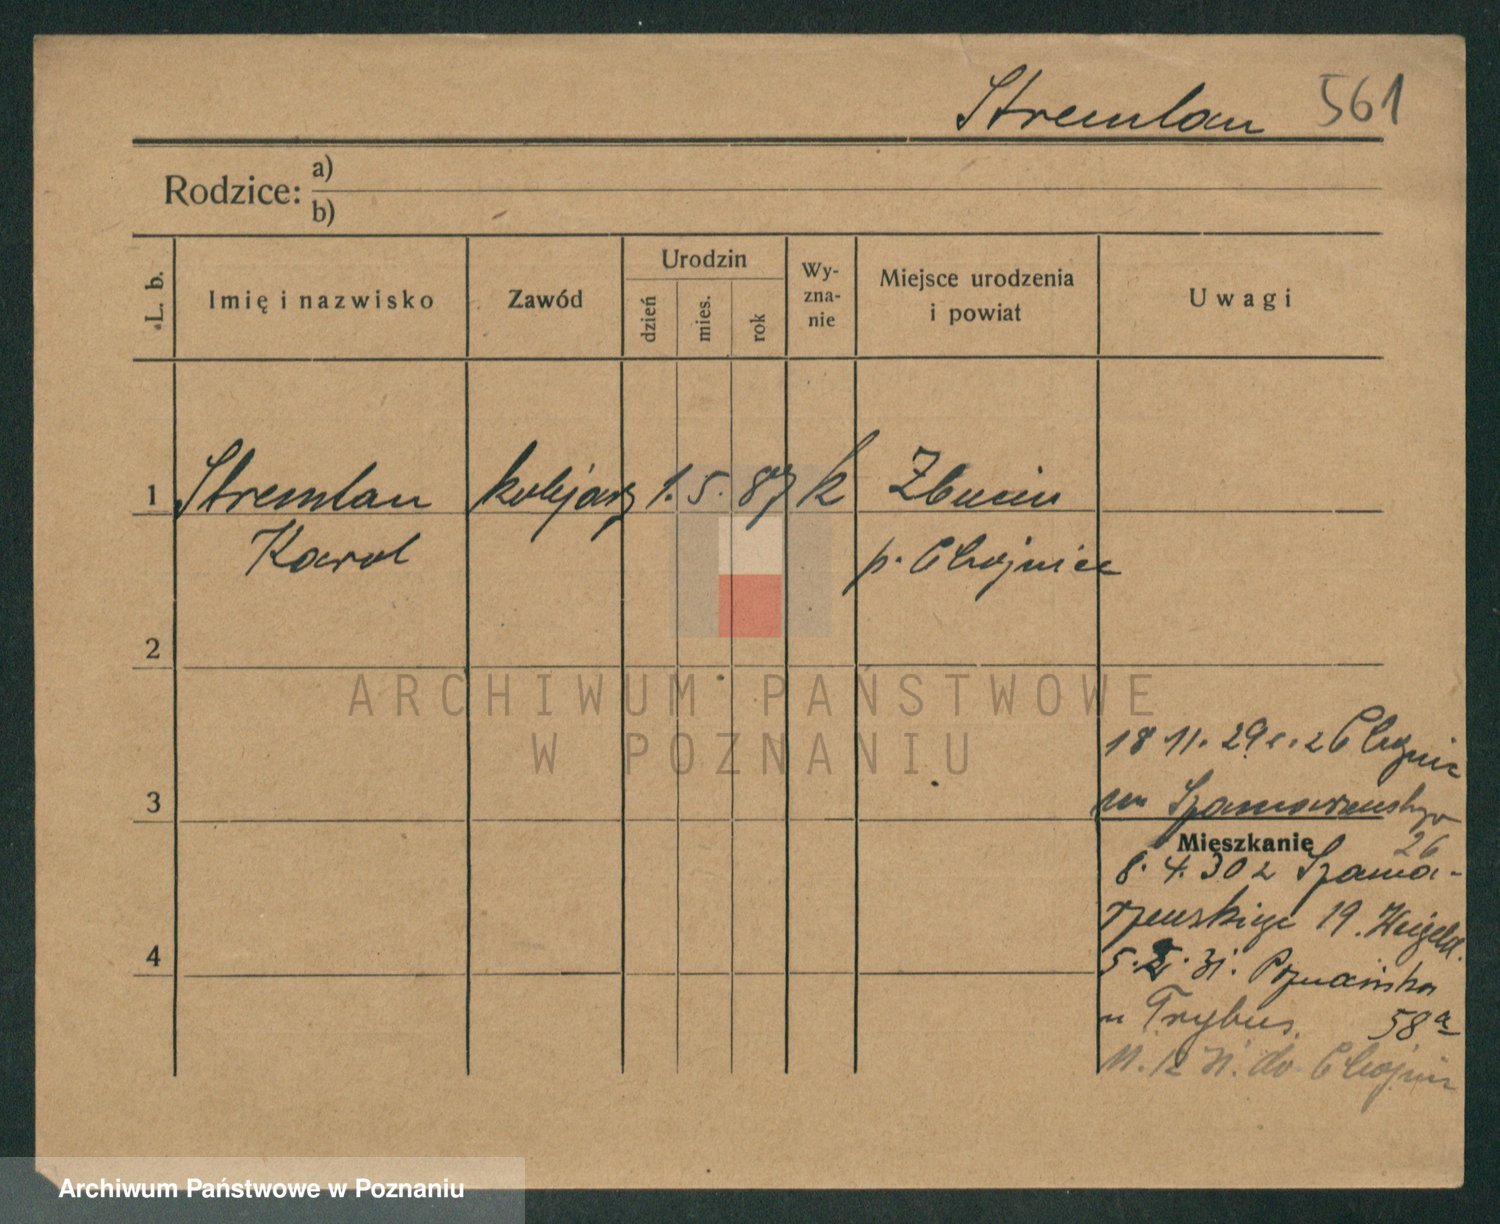 Stremlau 561
Rodzice: a)
b)
L. b. Imię i nazwisko Zawód Urodzin dzień mies. rok Wy-zna-nie Miejsce urodzenia i powiat Uwagi
1 Stremlau kolejarz 1. 5. 87 k
Karol p. Chojnice
2
ARCHIWUM PAŃSTWOWE
W POZNANIU
18 11. 29 z Chojnic
3
Mieszkanie 26
8. 4. 30 z Szama-
rzewskiego 19. Weigelt.
4
5. 31. Poznańska
u Trybus. 58a
11. 12 31. do Chojnic
Archiwum Państwowe w Poznaniu